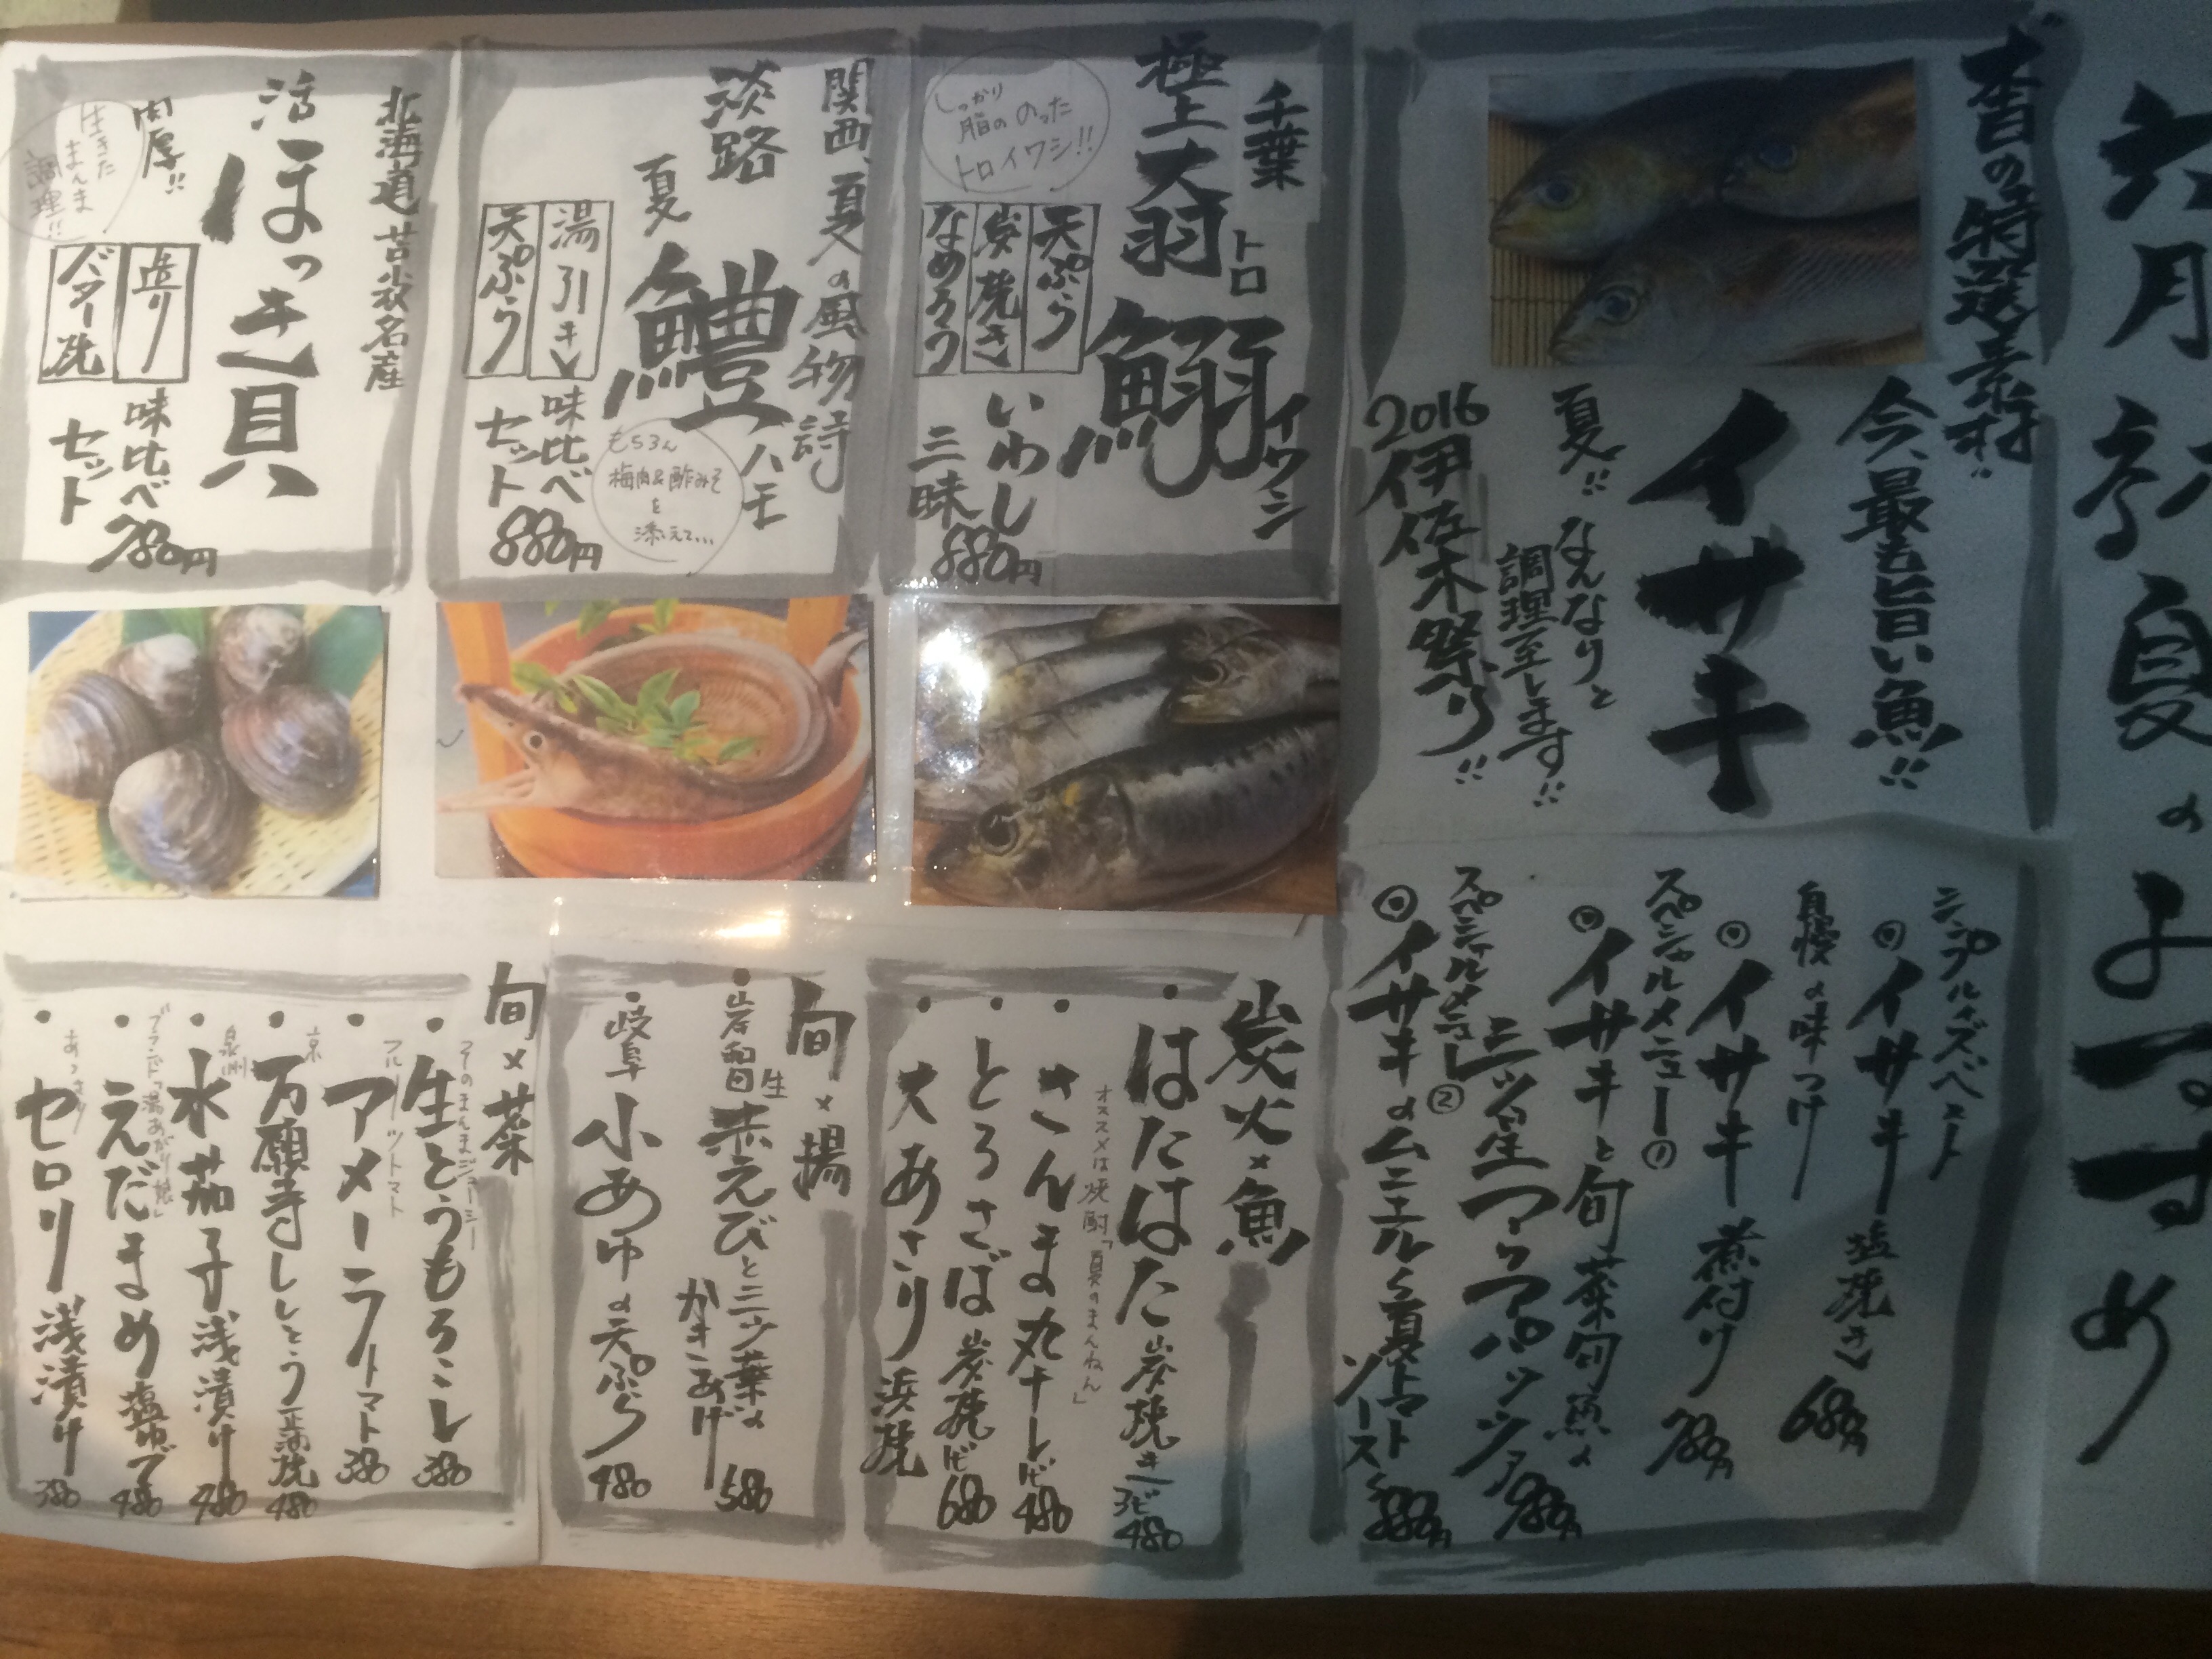 六月初夏のおすすめ
本日の特選素材!!
今、最も旨い魚!!
イサキ
夏!! なんなりと
調理致します!!
2016伊佐木祭り!!
シンプルイズベスト
イサキ塩焼き 680円
自慢の味つけ
イサキ煮付け 780円
スペシャルメニュー①
イサキと旬菜旬魚の
ミッ星アクアパッツァ 980円
スペシャルメニュー②
イサキのムニエル
〜夏トマトソース〜 880円
千葉
極上大羽
トロ
鰯
イワシ
しっかり
脂ののった
トロイワシ!!
天ぷら
炭焼き
なめろう
いわし
三昧
880円
関西、夏の風物詩
淡路
夏
鱧
ハモ
湯引き
天ぷら
味比べ
セット
880円
もちろん
梅肉&酢みそ
を
添えて…
北海道苫小牧名産
活ほっき貝
肉厚!!
生きた
まんま
調理!!
造り
バター焼
味比べ
セット
780円
炭火×魚
・はたはた炭焼き 3ビ 480
オススメは焼酎「夏のまんねん」
・さんま丸干し 1ビ 480
・とろさば炭焼 1ビ 680
・大あさり浜焼
旬×揚
・岩留生赤えびと三つ葉の
かきあげ 580
・岐阜小あゆの天ぷら 480
旬×菜
そのまんまジューシー
・生とうもろこし 380
フルーツトマト
・アメーラトマト 380
京
・万願寺ししとう 正油焼 480
泉州
・水茄子浅漬け 480
ブランド「湯あがり娘」
・えだまめ 塩ゆで 480
あっさり
・セロリ浅漬け 380